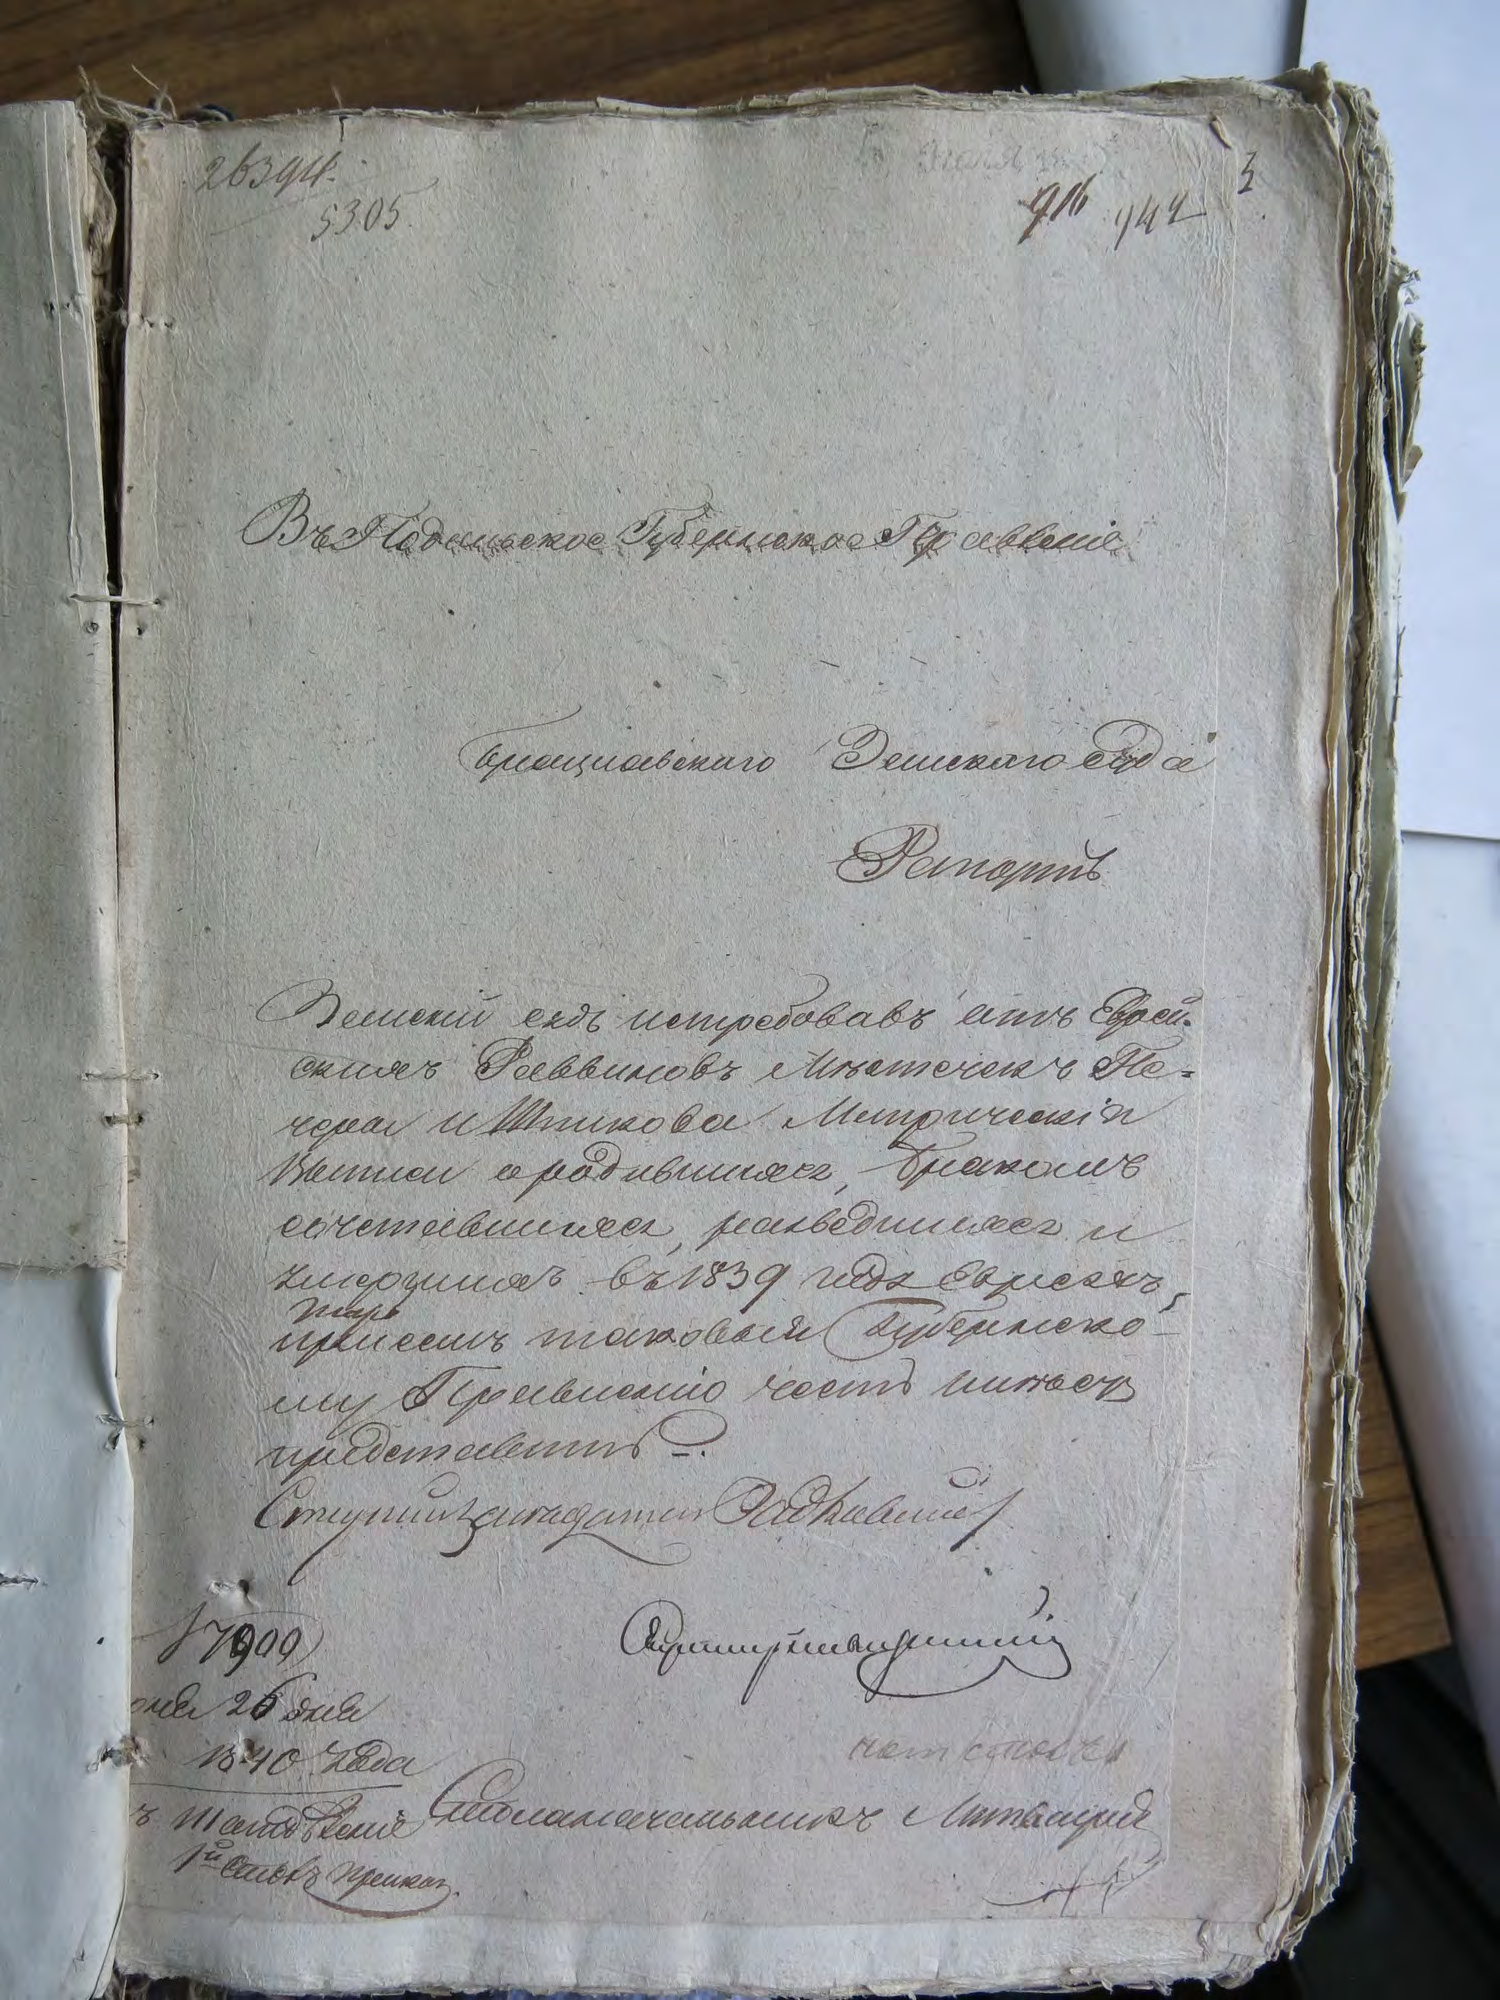 26394.
5305.
916 944 3
Въ Подольское Губернское Правленіе
Брацлавскаго Земскаго Суда
Рапортъ
Земскій судъ истребовавъ отъ Еврей-
скихъ Раввиновъ Мѣстечекъ Пе=
чера и Шпикова Метрическія
Книги о родившихся, бракомъ
сочетавшихся, разведшихся и
умершихъ въ 1839 году Евреяхъ,
при семъ таковыя Губернско-
му Правленію честь имѣетъ
представить.
Засѣдатель
17900
26 дня
1840 года
Столоначальникъ